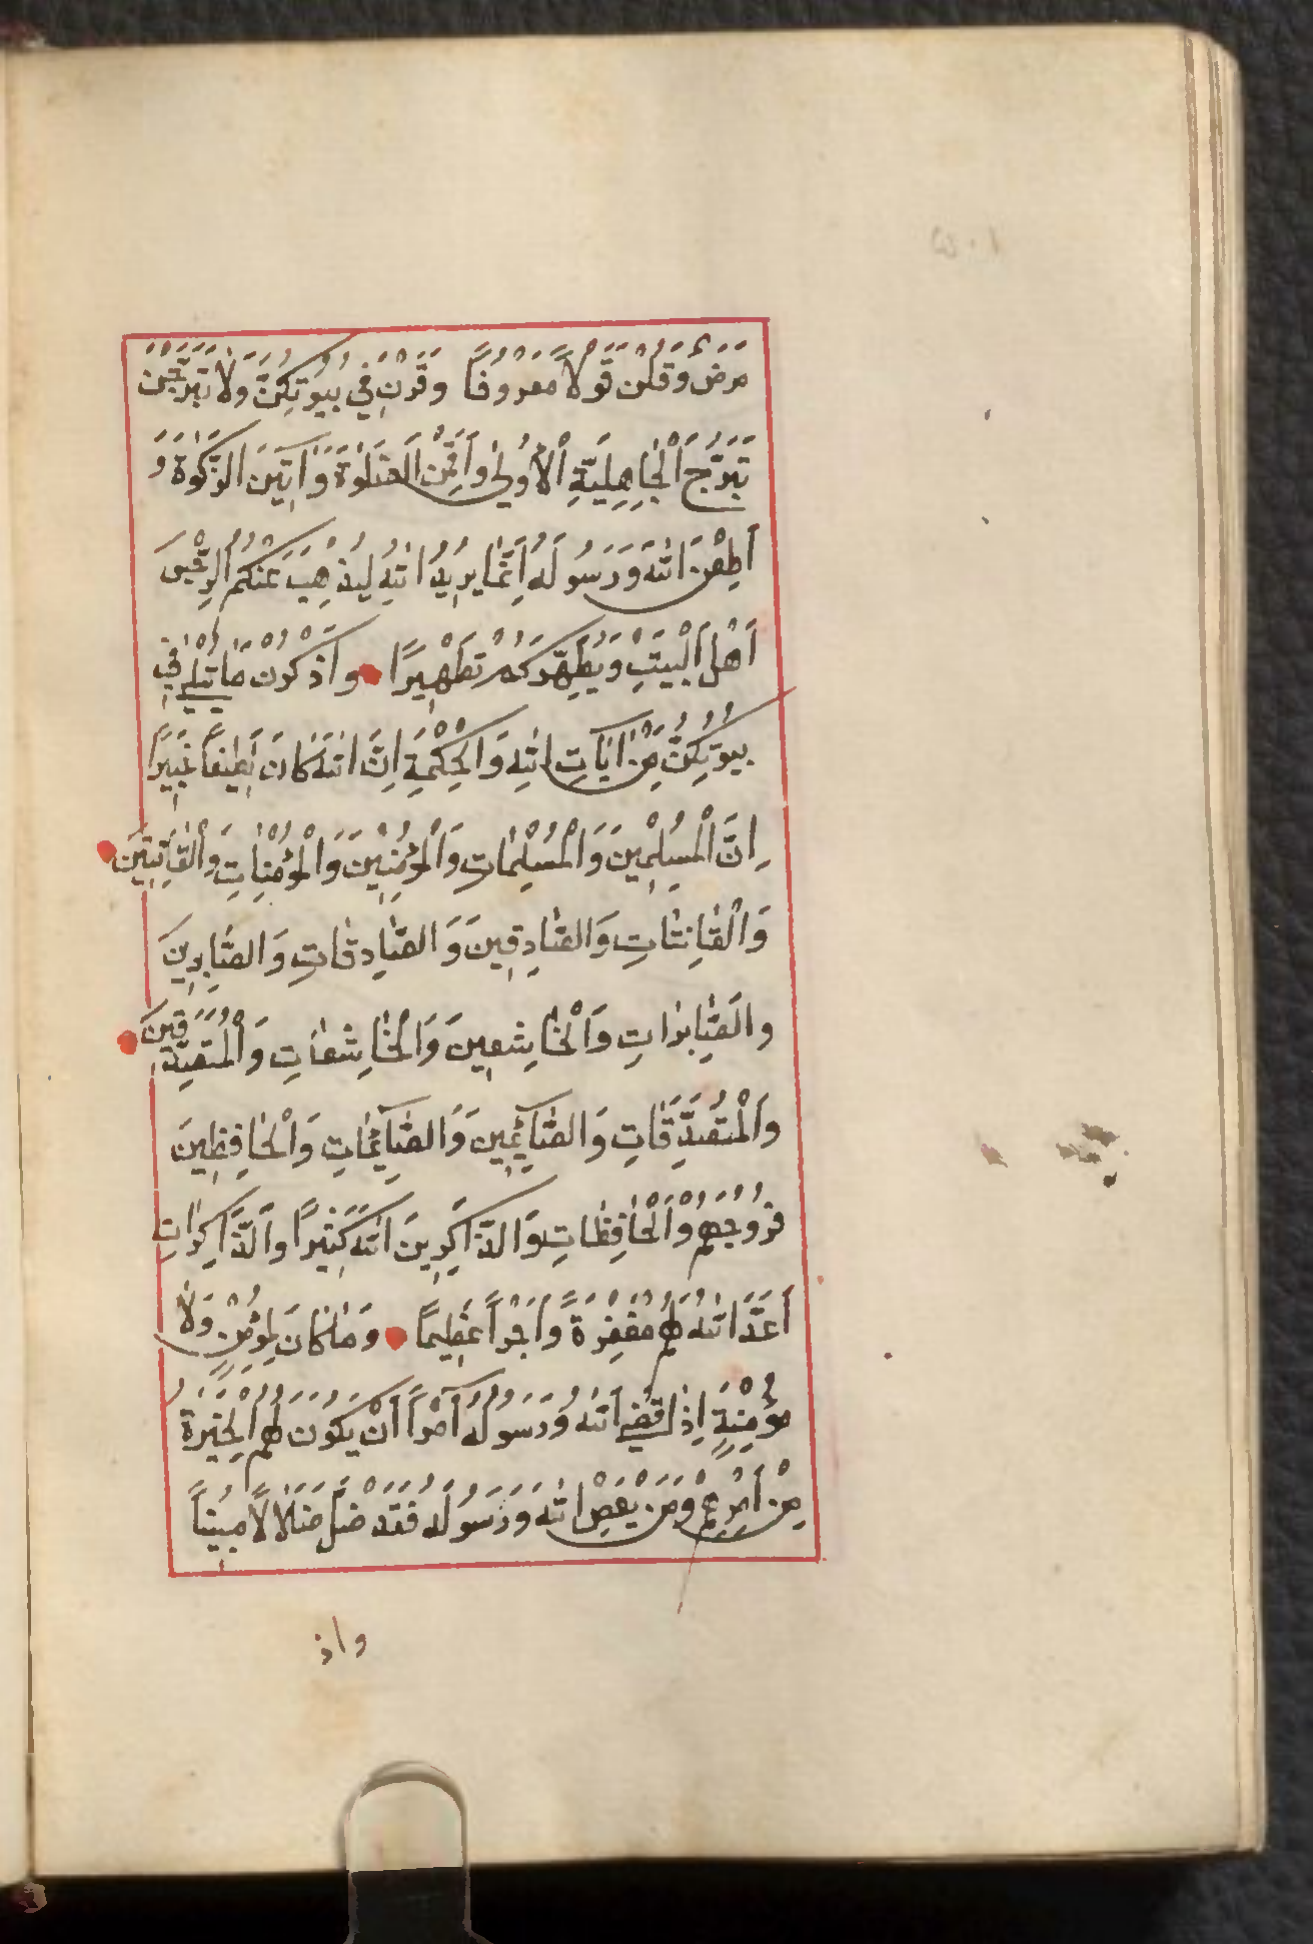 مَرَضٌ وَقُلْنَ قَوْلًا مَعْرُوفًا وَقَرْنَ فِي بُيُوتِكُنَّ وَلَا تَبَرَّجْنَ
تَبَرُّجَ الْجَاهِلِيَّةِ الْأُولَى وَأَقِمْنَ الصَّلَوٰةَ وَآتِينَ الزَّكَوٰةَ وَ
أَطِعْنَ اللّٰهَ وَرَسُولَهُ إِنَّمَا يُرِيدُ اللّٰهُ لِيُذْهِبَ عَنْكُمُ الرِّجْسَ
أَهْلَ الْبَيْتِ وَيُطَهِّرَكُمْ تَطْهِيرًا وَاذْكُرْنَ مَا يُتْلَى فِي
بُيُوتِكُنَّ مِنْ آيَاتِ اللّٰهِ وَالْحِكْمَةِ إِنَّ اللّٰهَ كَانَ لَطِيفًا خَبِيرًا
إِنَّ الْمُسْلِمِينَ وَالْمُسْلِمَاتِ وَالْمُؤْمِنِينَ وَالْمُؤْمِنَاتِ وَالْقَانِتِينَ
وَالْقَانِتَاتِ وَالصَّادِقِينَ وَالصَّادِقَاتِ وَالصَّابِرِينَ
وَالصَّابِرَاتِ وَالْخَاشِعِينَ وَالْخَاشِعَاتِ وَالْمُتَصَدِّقِينَ
وَالْمُتَصَدِّقَاتِ وَالصَّآئِمِينَ وَالصَّآئِمَاتِ وَالْحَافِظِينَ
فُرُوجَهُمْ وَالْحَافِظَاتِ وَالذَّاكِرِينَ اللّٰهَ كَثِيرًا وَالذَّاكِرَاتِ
أَعَدَّ اللّٰهُ لَهُمْ مَغْفِرَةً وَأَجْرًا عَظِيمًا وَمَا كَانَ لِمُؤْمِنٍ وَلَا
مُؤْمِنَةٍ إِذَا قَضَى اللّٰهُ وَرَسُولُهُ أَمْرًا أَنْ يَكُونَ لَهُمُ الْخِيَرَةُ
مِنْ أَمْرِهِمْ وَمَنْ يَعْصِ اللّٰهَ وَرَسُولَهُ فَقَدْ ضَلَّ ضَلَالًا مُبِينًا
واذ